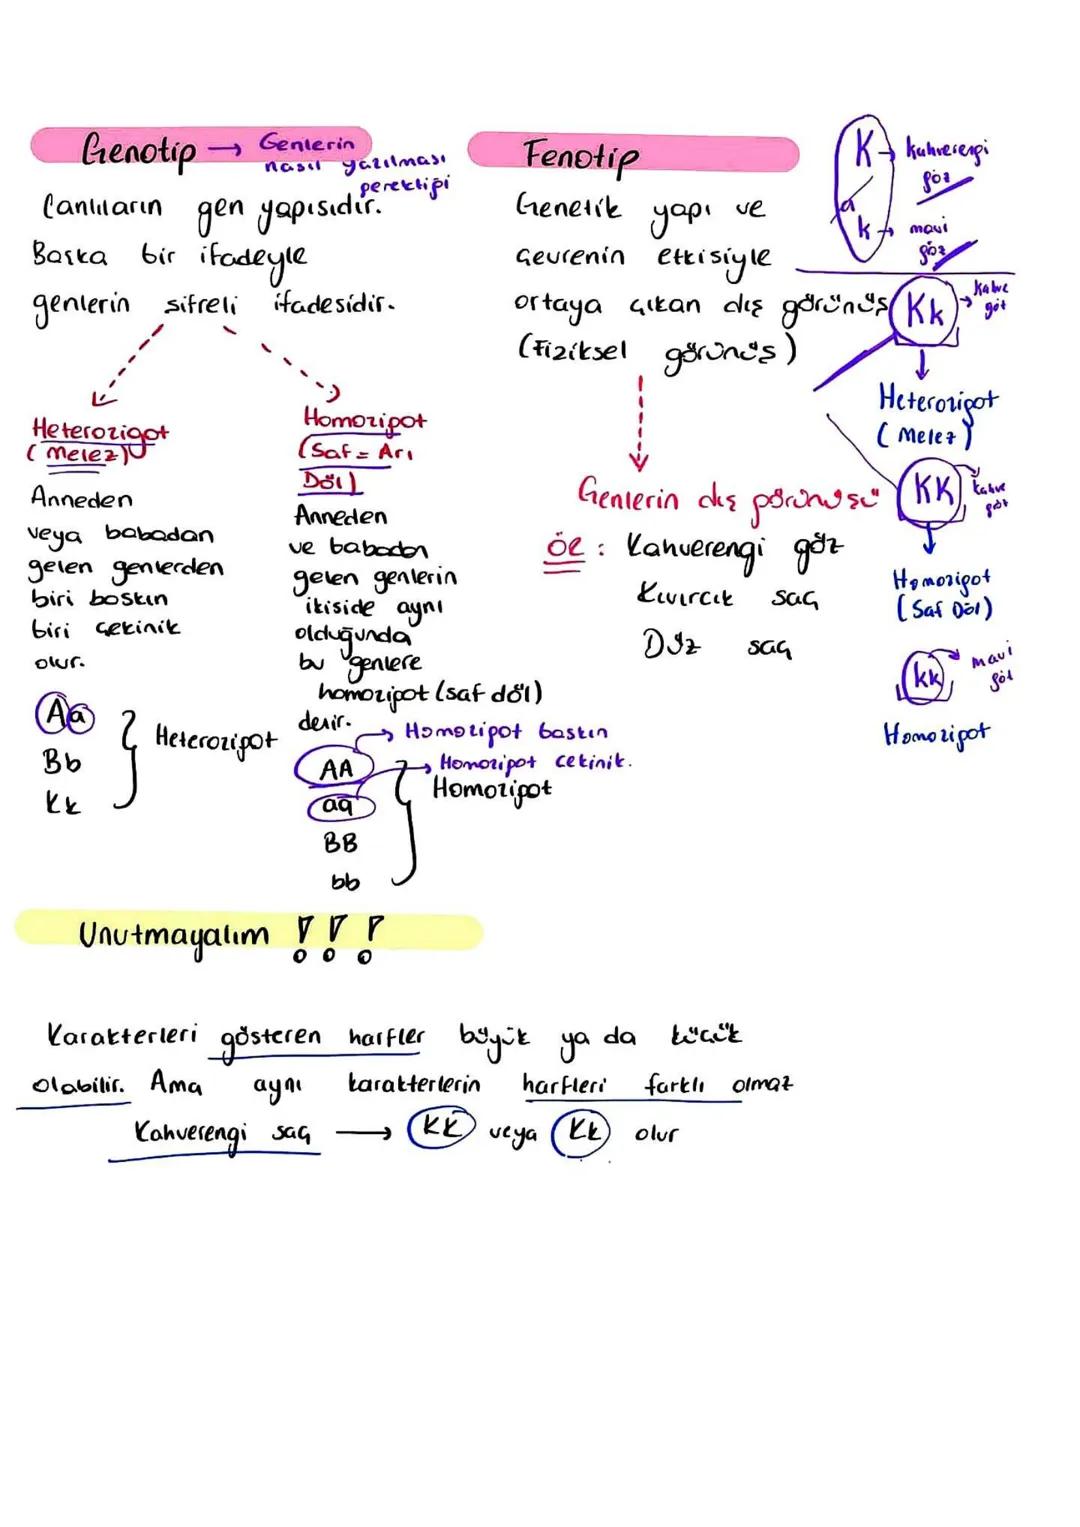 Genotip → Genlerin
nasıl yazılması
gerektiği
Canlıların gen yapısıdır.
Başka bir ifadeyle
genlerin şifreli ifadesidir.
Heterozigot
(Melez)
Anneden
veya babadan
gelen genlerden
biri baskın
biri çekinik
olur.
Aa
Bb
Kk
Heterozigot
Homozigot
(Saf = Arı
Döl)
Anneden
ve babadan
gelen genlerin
ikiside aynı
olduğunda
bu genlere
homozigot (saf döl)
denir.
→ Homozigot baskın
AA → Homozigot çekinik.
aa Homozigot
BB
bb
Fenotip
Genetik yapı ve
çevrenin etkisiyle
ortaya çıkan dış görünüş
(Fiziksel görünüş)
Genlerin dış görünüşü
ÖR : Kahverengi göz
Kıvırcık saç
Düz saç
K → kahverengi
göz
k → mavi
göz
Kk → kahve
göz
Heterozigot
(Melez)
KK kahve
göz
Homozigot
(Saf Döl)
kk mavi
göz
Homozigot
Unutmayalım !!!
Karakterleri gösteren harfler büyük ya da küçük
olabilir. Ama aynı karakterlerin harfleri farklı olmaz
Kahverengi saç → KK veya Kk olur